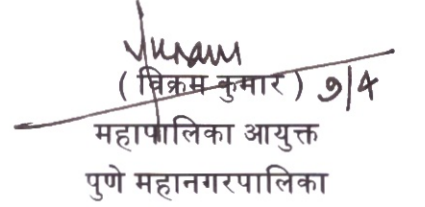 ( विक्रम कुमार ) ७/४
महापालिका आयुक्त
पुणे महानगरपालिका